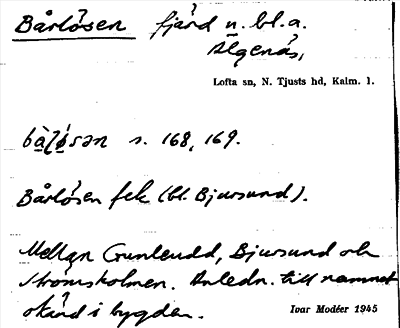 Bårlösen fjärd n. bl. a.
Älgenäs,
Lofta sn, N. Tjusts hd, Kalm. l.
s. 168, 169.
Bårlösen fek (bl. Bjursund).
Mellan Grunnudd, Bjursund och
Strömsholmen. Anledn. till namnet
okänd i bygden.
Ivar Modéer 1945